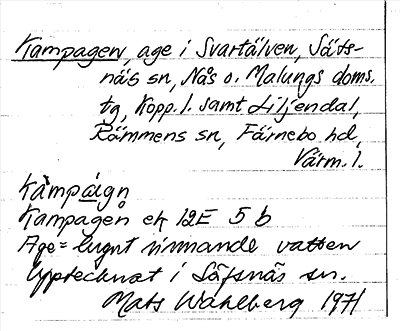 Kampagen, age i Svartälven, Säfs-
näs sn, Nås o. Malungs doms.
tg, Kopp. l. samt Liljendal,
Rämmens sn, Färnebo hd,
Värm. l.
Kampagen ek 12E 5 b
Age = lugnt rinnande vatten
Upptecknat i Säfsnäs sn.
Mats Wahlberg 1971